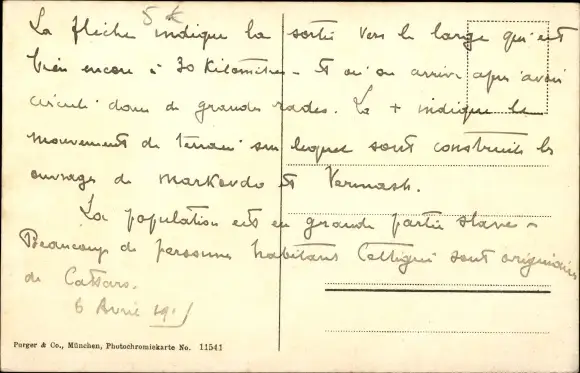 5 K
La flèche indique la sortie vers le large qui est
bien encore à 30 Kilomètres - Et où on arrive après avoir
circulé dans de grandes rades. La + indique le
mouvement de terrain sur lequel sont construits les
ouvrages de Markovdo et Vermash.
La population est en grande partie slave -
Beaucoup de personnes habitant Cettigné sont originaires
de Cattaro.
6 Avril 191
Purger & Co., München, Photochromiekarte No. 11541